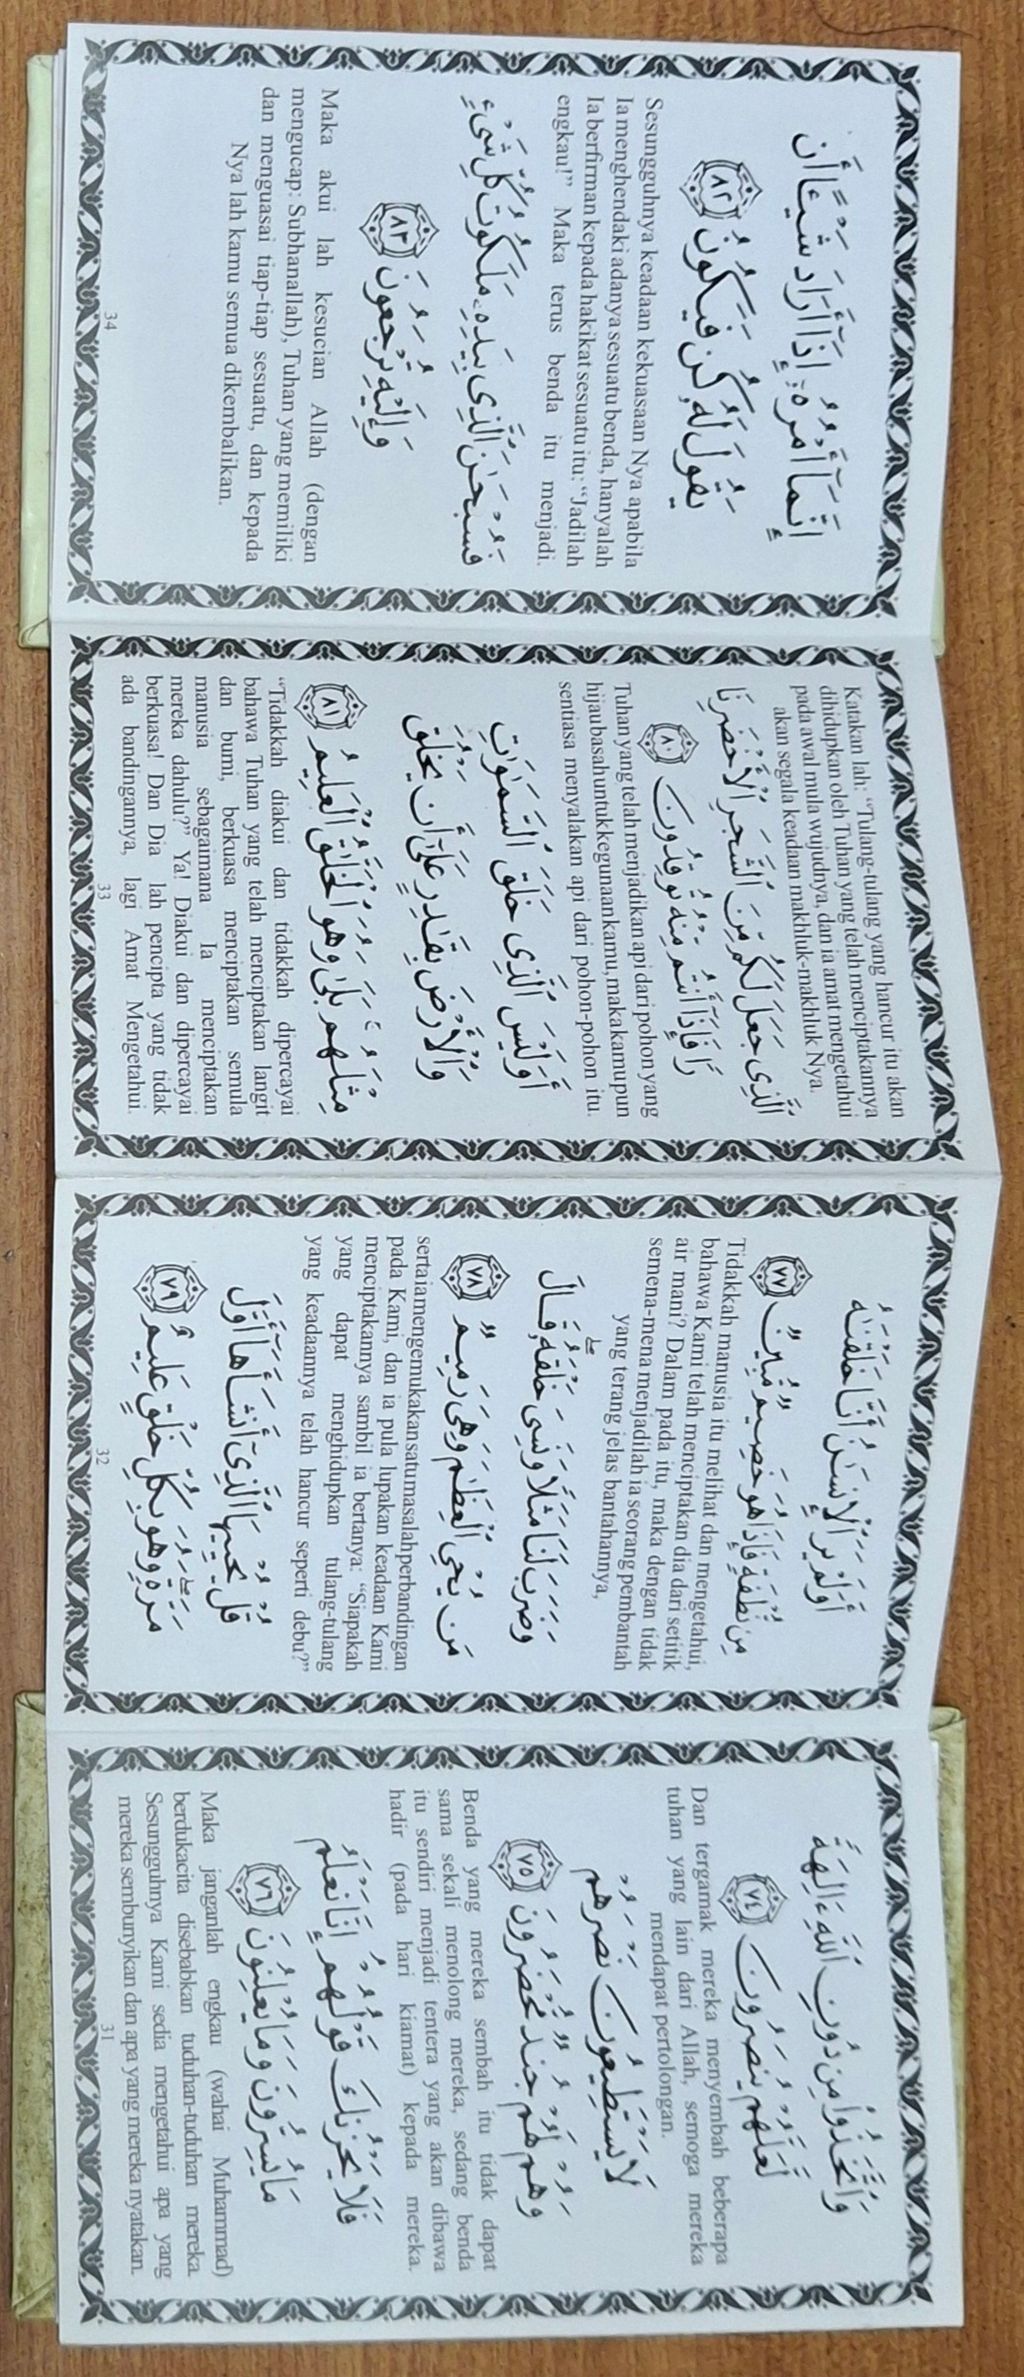 وَٱتَّخَذُوا۟ مِن دُونِ ٱللَّهِ ءَالِهَةً
لَّعَلَّهُمْ يُنصَرُونَ ﴿٧٤﴾
Dan tergamak mereka menyembah beberapa
tuhan yang lain dari Allah, semoga mereka
mendapat pertolongan.
لَا يَسْتَطِيعُونَ نَصْرَهُمْ
وَهُمْ لَهُمْ جُندٌ مُّحْضَرُونَ ﴿٧٥﴾
Benda yang mereka sembah itu tidak dapat
sama sekali menolong mereka, sedang benda
itu sendiri menjadi tentera yang akan dibawa
hadir (pada hari kiamat) kepada mereka.
فَلَا يَحْزُنكَ قَوْلُهُمْ إِنَّا نَعْلَمُ
مَا يُسِرُّونَ وَمَا يُعْلِنُونَ ﴿٧٦﴾
Maka janganlah engkau (wahai Muhammad)
berdukacita disebabkan tuduhan-tuduhan mereka.
Sesungguhnya Kami sedia mengetahui apa yang
mereka sembunyikan dan apa yang mereka nyatakan.
31
أَوَلَمْ يَرَ ٱلْإِنسَـٰنُ أَنَّا خَلَقْنَـٰهُ
مِن نُّطْفَةٍ فَإِذَا هُوَ خَصِيمٌ مُّبِينٌ ﴿٧٧﴾
Tidakkah manusia itu melihat dan mengetahui,
bahawa Kami telah menciptakan dia dari setitik
air mani? Dalam pada itu, maka dengan tidak
semena-mena menjadilah ia seorang pembantah
yang terang jelas bantahannya,
وَضَرَبَ لَنَا مَثَلًا وَنَسِىَ خَلْقَهُۥ ۖ قَالَ
مَن يُحْىِ ٱلْعِظَـٰمَ وَهِىَ رَمِيمٌ ﴿٧٨﴾
serta ia mengemukakan satu masalah perbandingan
pada Kami, dan ia pula lupakan keadaan Kami
menciptakannya sambil ia bertanya: “Siapakah
yang dapat menghidupkan tulang-tulang
yang keadaannya telah hancur seperti debu?”
قُلْ يُحْيِيهَا ٱلَّذِىٓ أَنشَأَهَآ أَوَّلَ
مَرَّةٍ ۖ وَهُوَ بِكُلِّ خَلْقٍ عَلِيمٌ ﴿٧٩﴾
32
Katakan lah: “Tulang-tulang yang hancur itu akan
dihidupkan oleh Tuhan yang telah menciptakannya
pada awal mula wujudnya, dan ia amat mengetahui
akan segala keadaan makhluk-makhluk Nya.
ٱلَّذِى جَعَلَ لَكُم مِّنَ ٱلشَّجَرِ ٱلْأَخْضَرِ نَا
رًا فَإِذَآ أَنتُم مِّنْهُ تُوقِدُونَ ﴿٨٠﴾
Tuhan yang telah menjadikan api dari pohon yang
hijau basah untuk kegunaan kamu, maka kamu pun
sentiasa menyalakan api dari pohon-pohon itu.
أَوَلَيْسَ ٱلَّذِى خَلَقَ ٱلسَّمَـٰوَٰتِ
وَٱلْأَرْضَ بِقَـٰدِرٍ عَلَىٰٓ أَن يَخْلُقَ
مِثْلَهُم ۚ بَلَىٰ وَهُوَ ٱلْخَلَّـٰقُ ٱلْعَلِيمُ ﴿٨١﴾
“Tidakkah diakui dan tidakkah dipercayai
bahawa Tuhan yang telah menciptakan langit
dan bumi, berkuasa menciptakan semula
manusia sebagaimana Ia menciptakan
mereka dahulu?” Ya! Diakui dan dipercayai
berkuasa! Dan Dia lah pencipta yang tidak
ada bandingannya, lagi Amat Mengetahui.
33
إِنَّمَآ أَمْرُهُۥٓ إِذَآ أَرَادَ شَيْـًٔا أَن
يَقُولَ لَهُۥ كُن فَيَكُونُ ﴿٨٢﴾
Sesungguhnya keadaan kekuasaan Nya apabila
Ia menghendaki adanya sesuatu benda, hanyalah
Ia berfirman kepada hakikat sesuatu itu: “Jadilah
engkau!” Maka terus benda itu menjadi.
فَسُبْحَـٰنَ ٱلَّذِى بِيَدِهِۦ مَلَكُوتُ كُلِّ شَىْءٍ
وَإِلَيْهِ تُرْجَعُونَ ﴿٨٣﴾
Maka akui lah kesucian Allah (dengan
mengucap: Subhanallah), Tuhan yang memiliki
dan menguasai tiap-tiap sesuatu, dan kepada
Nya lah kamu semua dikembalikan.
34